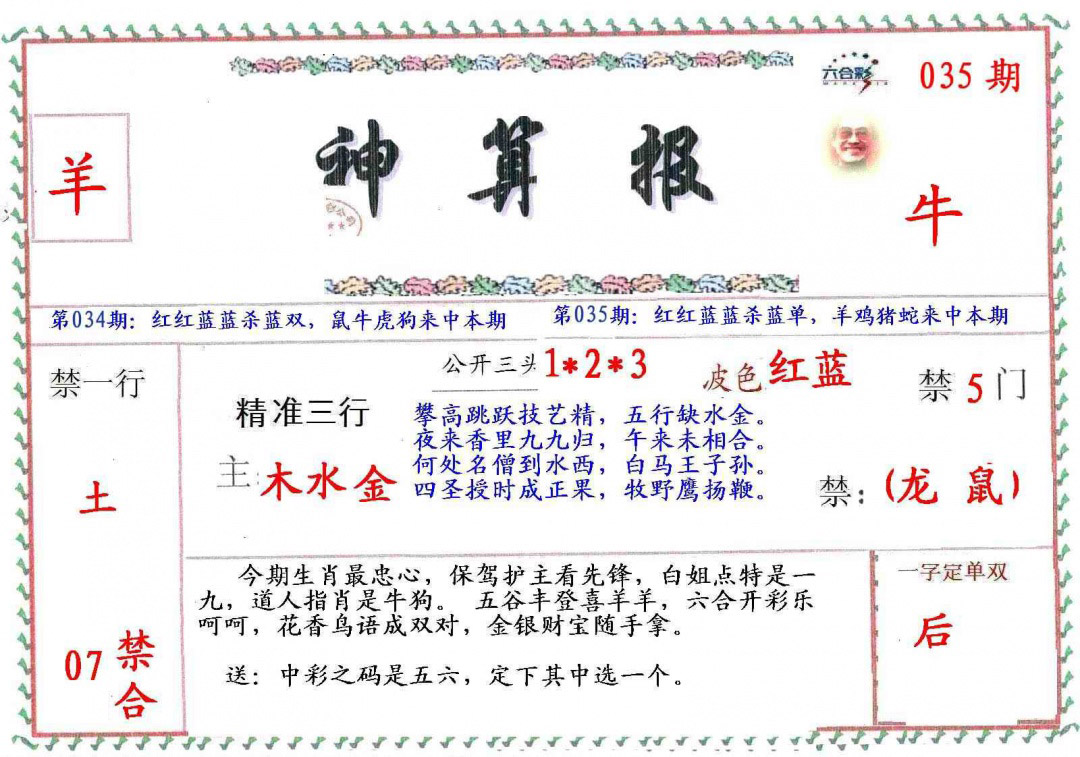 六合彩
035 期
羊
神算报
牛
第034期：红红蓝蓝杀蓝双，鼠牛虎狗来中本期
第035期：红红蓝蓝杀蓝单，羊鸡猪蛇来中本期
禁一行
土
07 禁合
公开三头 1*2*3
波色 红蓝
精准三行
主：木水金
攀高跳跃技艺精，五行缺水金。
夜来香里九九归，午来未相合。
何处名僧到水西，白马王子孙。
四圣授时成正果，牧野鹰扬鞭。
禁 5 门
禁：(龙 鼠)
今期生肖最忠心，保驾护主看先锋，白姐点特是一
九，道人指肖是牛狗。 五谷丰登喜羊羊，六合开彩乐
呵呵，花香鸟语成双对，金银财宝随手拿。
送：中彩之码是五六，定下其中选一个。
一字定单双
后